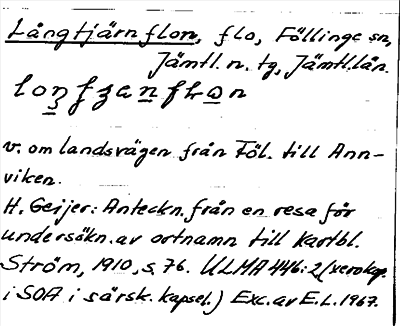 Långtjärnflon, flo, Föllinge sn,
Jämtl. n. tg, Jämtl. län.
v. om landsvägen från Föl. till Ann-
viken.
H. Geijer: Anteckn. från en resa för
undersökn. av ortnamn till Kartbl.
Ström, 1910, s. 76. ULMA 446:2 (xerokop.
i SOA i särsk. kapsel.) Exc. av E.L. 1967.